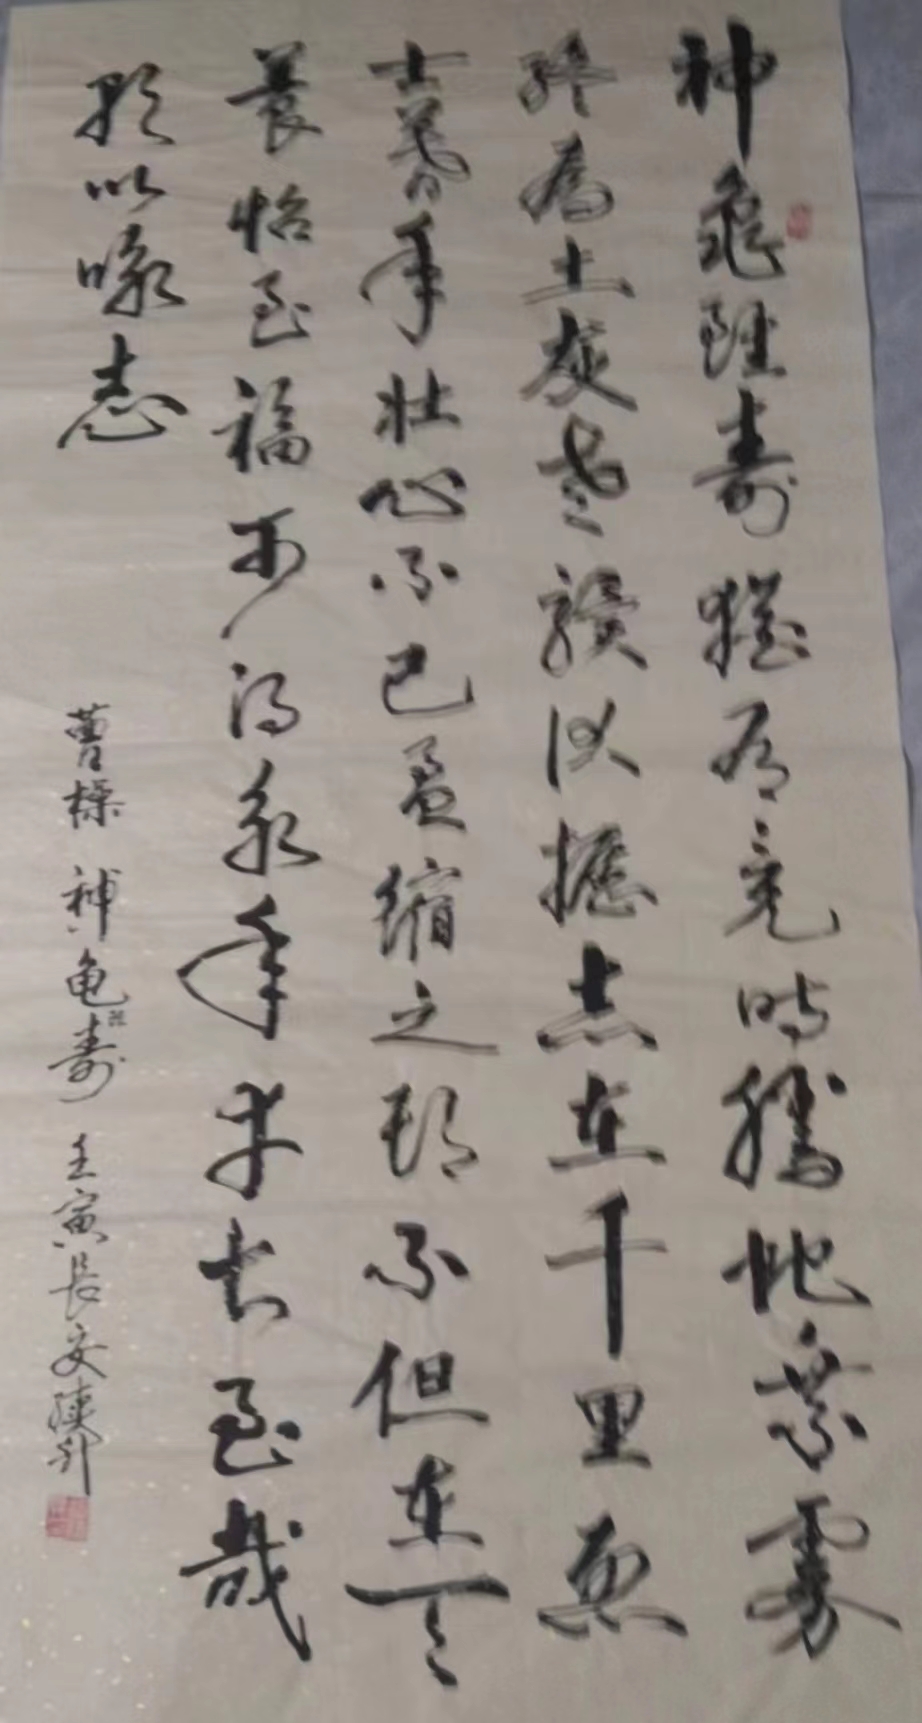 神龜雖壽猶有竟時騰蛇乘霧
終為土灰老驥伏櫪志在千里烈
士暮年壯心不已盈縮之期不但在天
養怡至福可得永年幸甚至哉
歌以咏志
曹操 神龟壽 壬寅長安